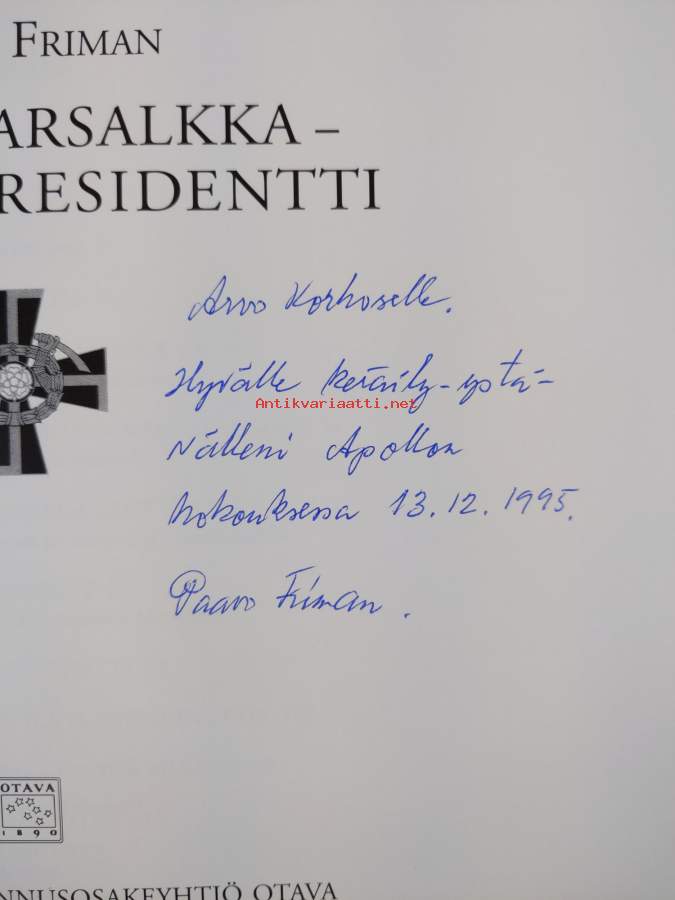 FRIMAN
ARSALKKA –
RESIDENTTI
Arvo Korhoselle.
Hyvälle keräily-ystä-
Antikvariaatti.net
välleni Apollon
kokouksessa 13.12.1995.
Paavo Friman.
OTAVA
1890
NNUSOSAKEYHTIÖ OTAVA